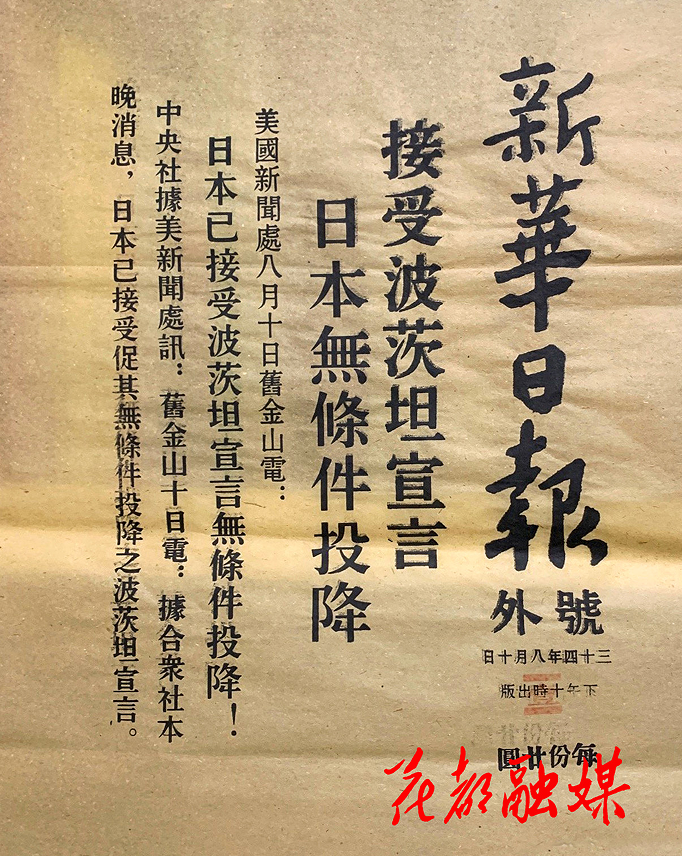 新華日報
號外
三十四年八月十日
下午十時出版
每份廿圓
接受波茨坦宣言
日本無條件投降
美國新聞處八月十日舊金山電：
日本已接受波茨坦宣言無條件投降！
中央社據美新聞處訊：舊金山十日電：據合衆社本
晚消息，日本已接受促其無條件投降之波茨坦宣言。
花都融媒